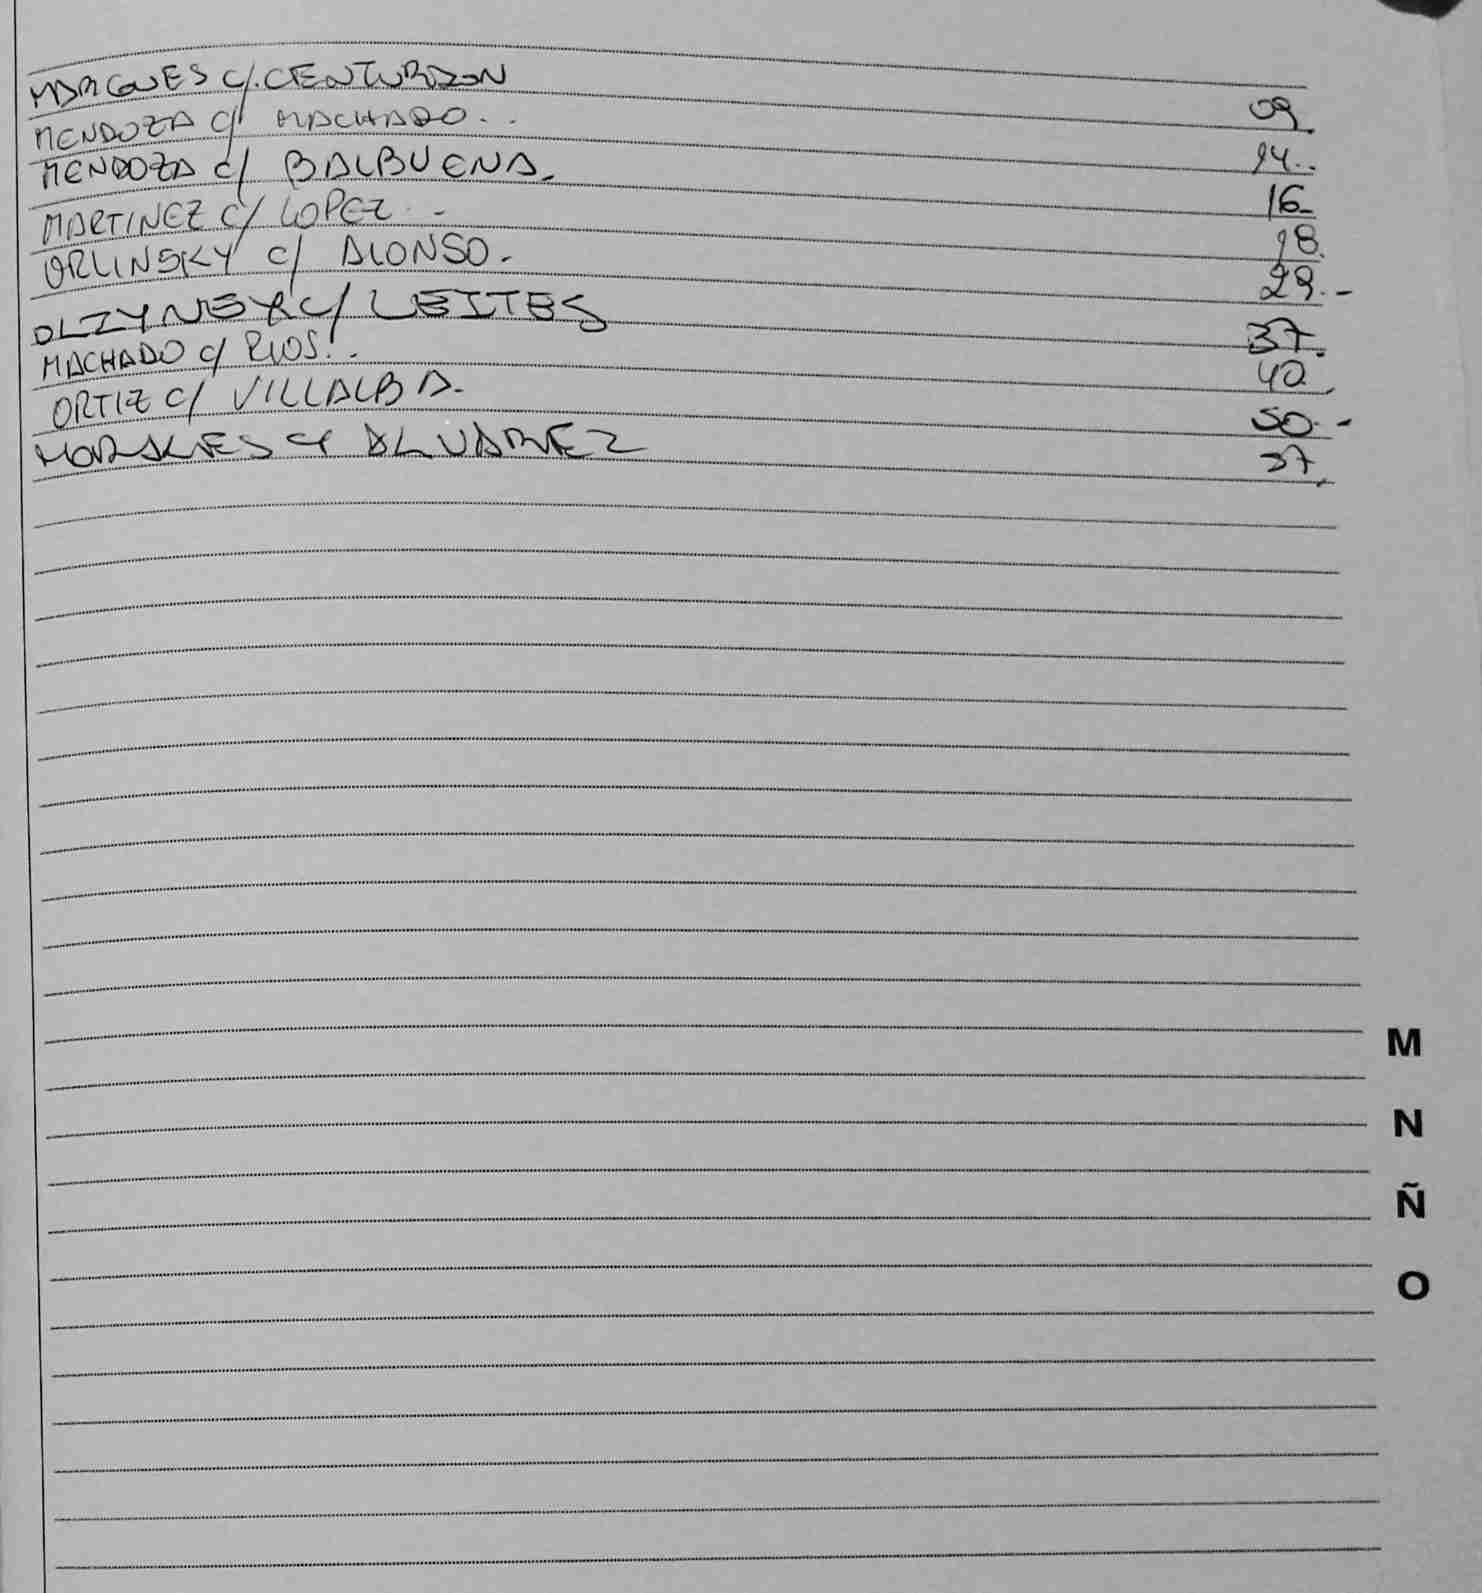 MARQUES c/. CENTURION 09.
MENDOZA c/ MACHADO.. 14..
MENDOZA c/ BALBUENA. 16-
MARTINEZ c/ LOPEZ.- 18.
ORLINSKY c/ ALONSO.- 29.-
c/ LEITES 37.
MACHADO c/ RIOS.-. 40.
ORTIZ c/ VILLALBA. 50.-
MORALES c/ ALVAREZ 37,
M
N
Ñ
O